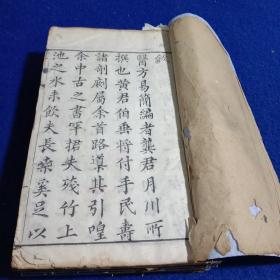 醫方易簡編者龔君月川所
撰也黃君伯垂將付手民壽
諸剞劂屬余首路導其引喤
余中古之書罕捃失殘竹上
池之水未飲夫長桑奚足以